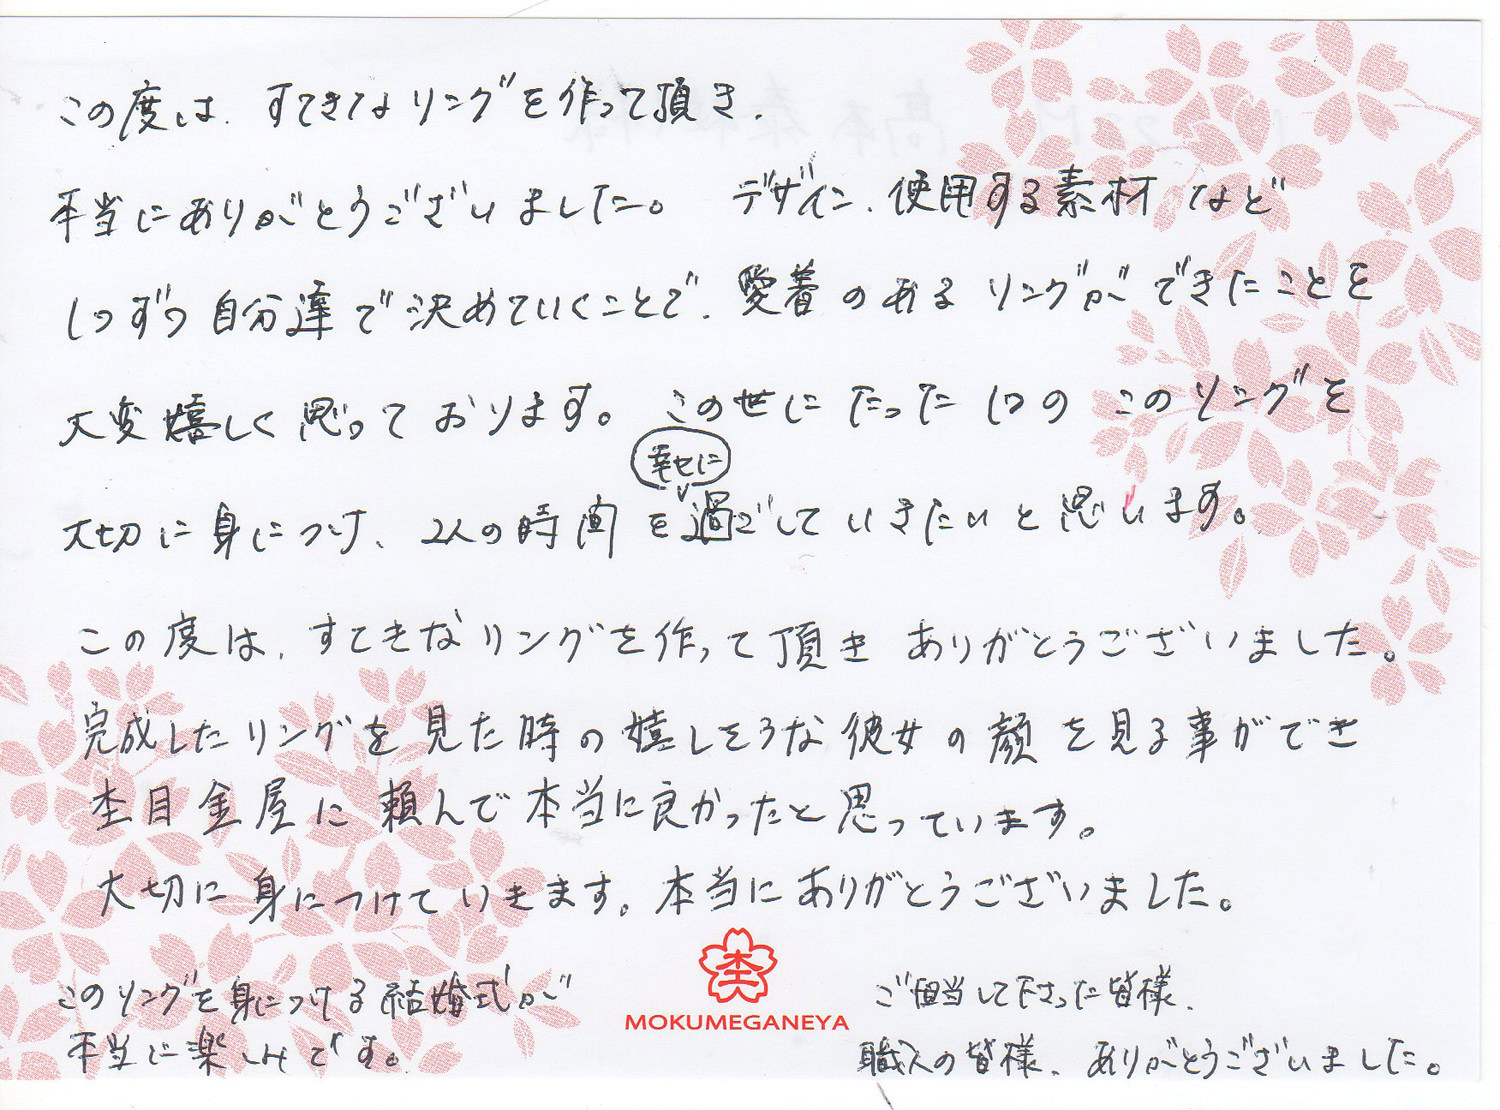 この度は、すてきなリングを作って頂き、
本当にありがとうございました。 デザイン、使用する素材 など
1つずつ 自分達で決めていくことで、愛着のある リングができたことを
大変嬉しく思っております。 この世に たった 1つの このリングを
幸せに
大切に身につけ、2人の時間を過ごしていきたいと思います。
この度は、すてきなリングを作って頂き ありがとうございました。
完成したリングを見た時の嬉しそうな彼女の顔を見る事ができ
杢目金屋に頼んで本当に良かったと思っています。
大切に身につけていきます。本当にありがとうございました。
このリングを身につける結婚式が
本当に楽しみです。
杢
MOKUMEGANEYA
ご担当して下さった皆様、
職人の皆様、ありがとうございました。